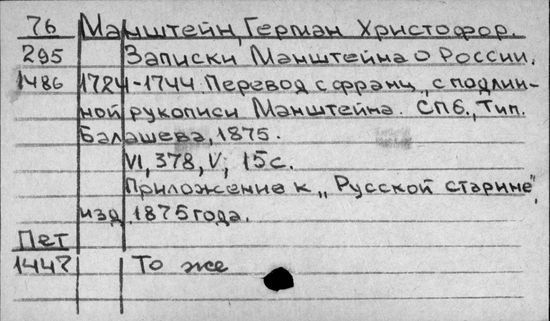 76 Манштейн, Герман Христофор.
295 Записки Манштейна о России.
1486 1724-1744. Перевод с франц., с подлин-
ной рукописи Манштейна. СПб., Тип.
Балашева, 1875.
VI, 378, V, 15 с.
Приложение к „Русской старине",
изд. 1875 года.
Пет
1447 То же